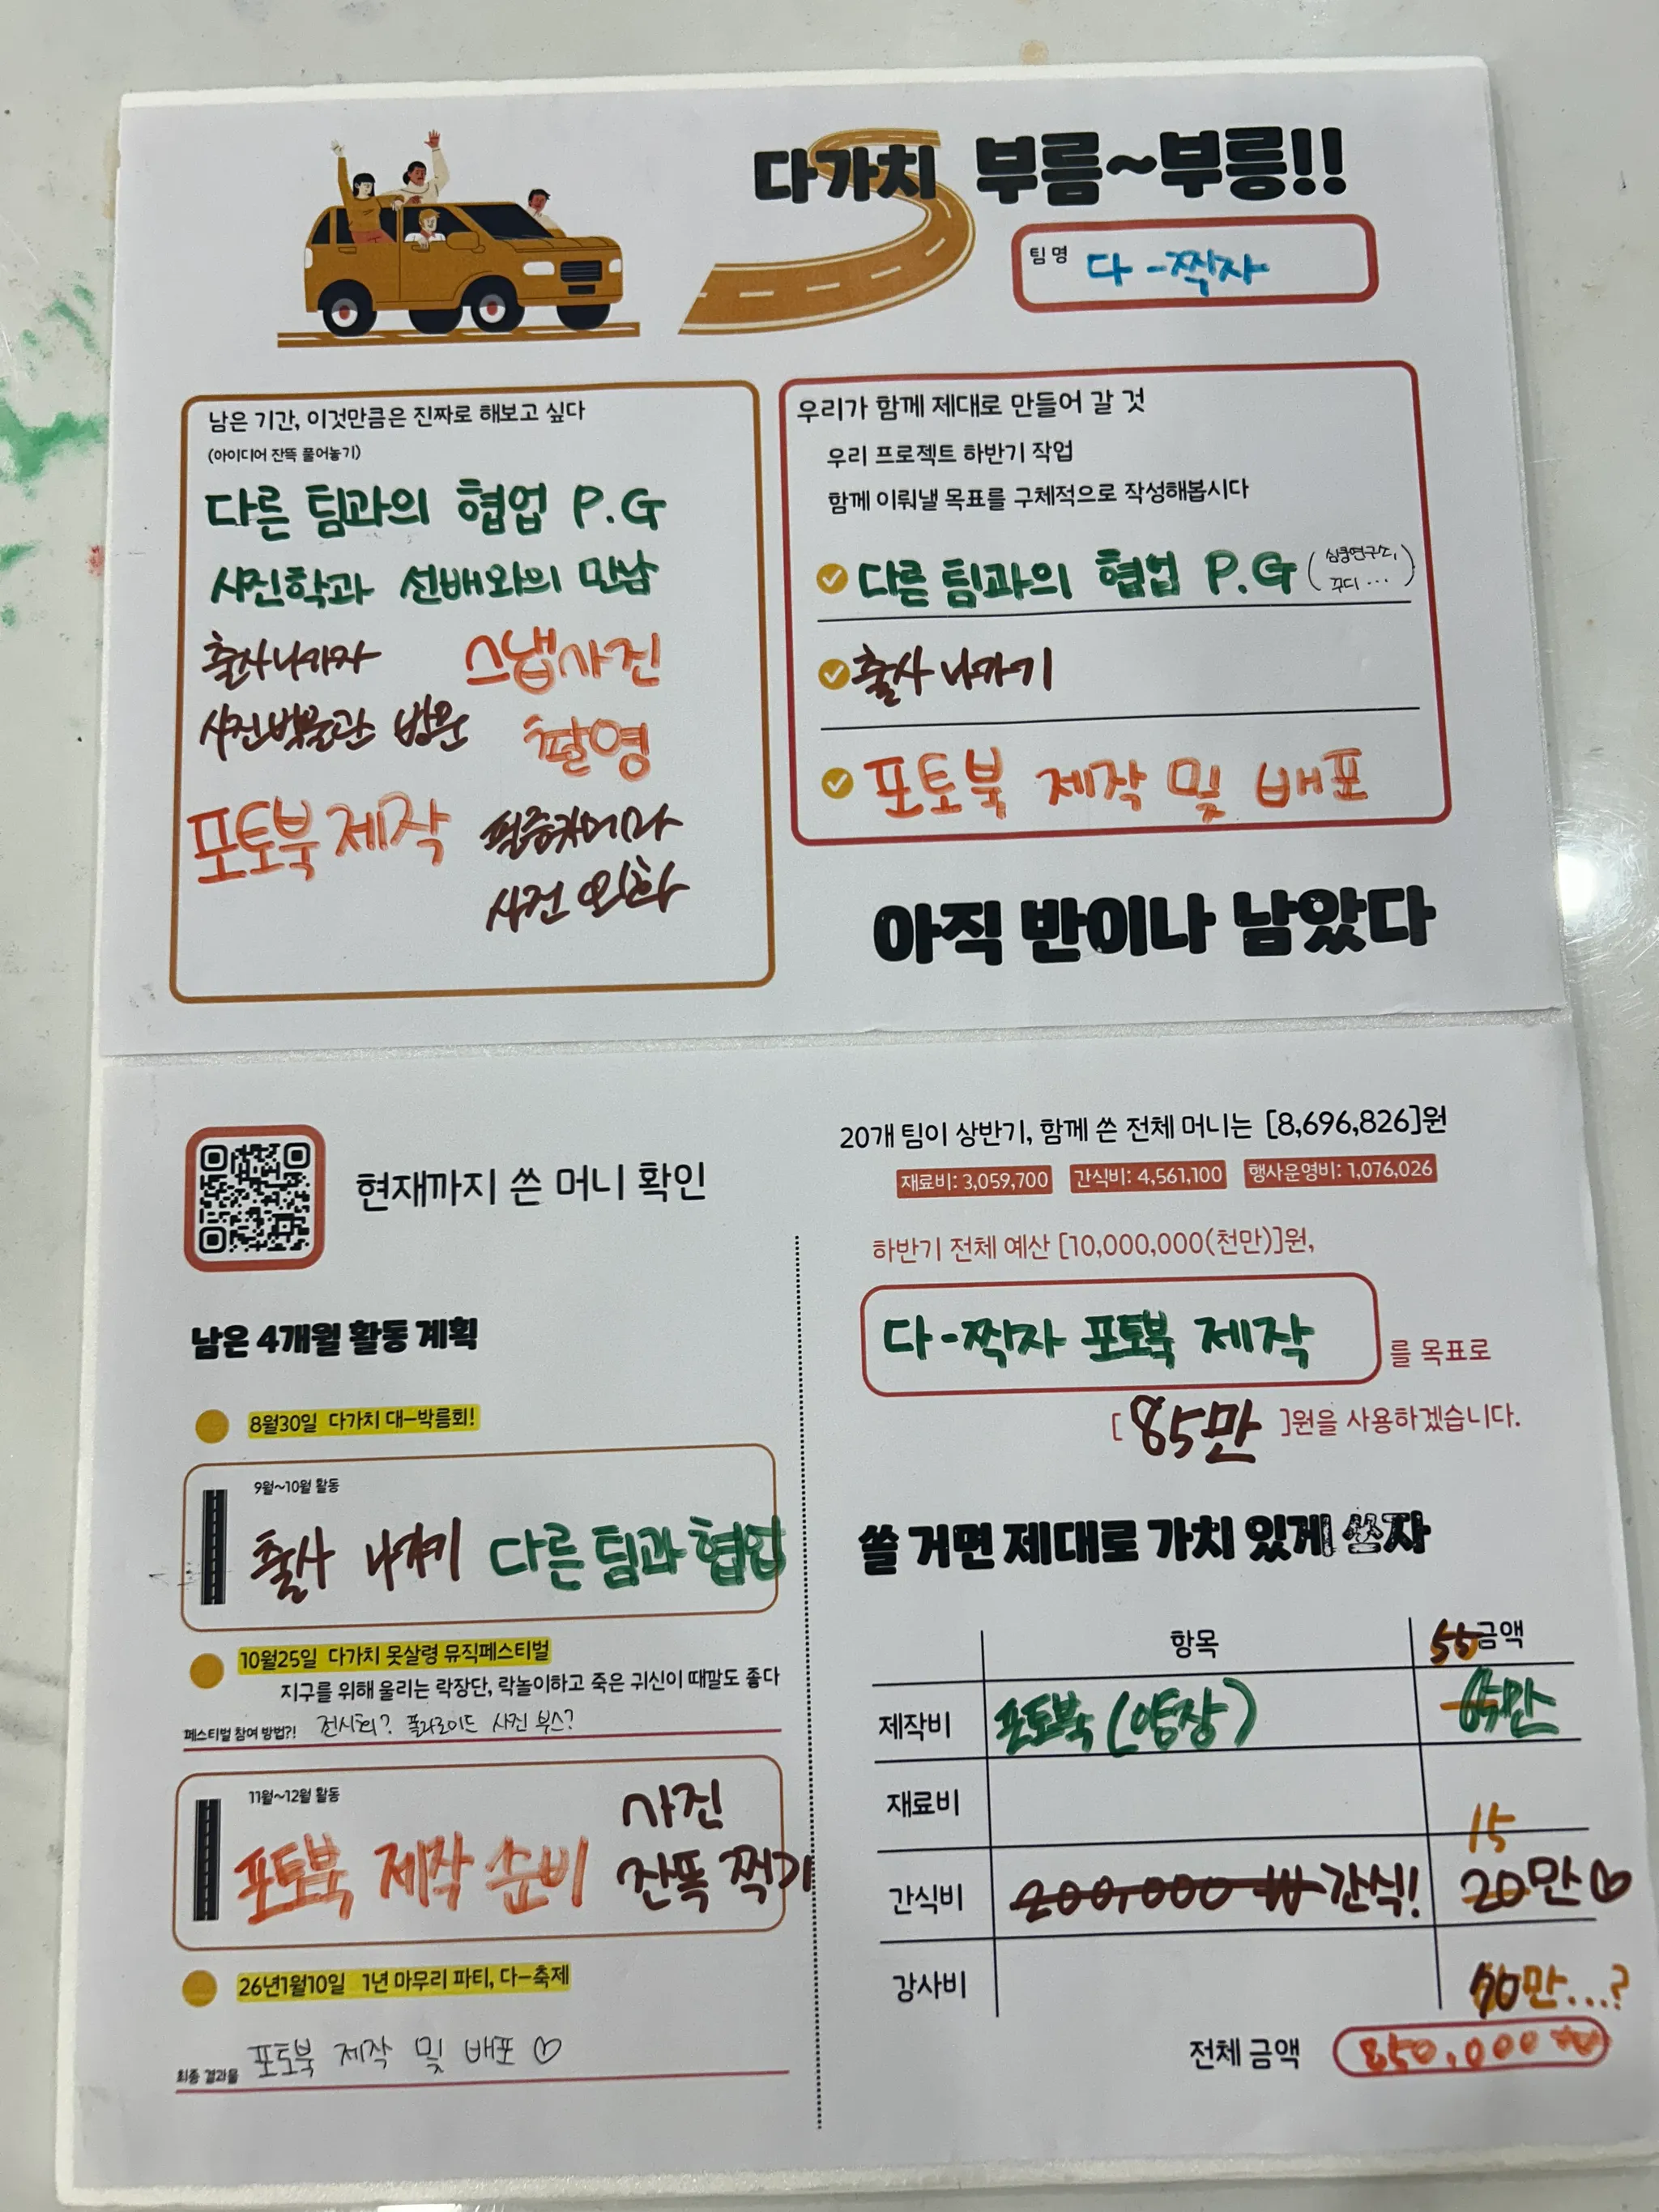 다가치 부름~부릉!!
팀명 다-찍자
남은 기간, 이것만큼은 진짜로 해보고 싶다
(아이디어 잔뜩 풀어놓기)
다른 팀과의 협업 P.G
사진학과 선배와의 만남
출사나가자
스냅사진
촬영
사진박물관 방문
포토북 제작
필름카메라
사진 인화
우리가 함께 제대로 만들어 갈 것
우리 프로젝트 하반기 작업
함께 이뤄낼 목표를 구체적으로 작성해봅시다
다른 팀과의 협업 P.G (심쿵연구소, 꾸디...)
출사 나가기
포토북 제작 및 배포
아직 반이나 남았다
현재까지 쓴 머니 확인
남은 4개월 활동 계획
8월30일 다가치 대-박름회!
9월~10월 활동
출사 나가기 다른 팀과 협업
10월25일 다가치 못살령 뮤직페스티벌
지구를 위해 울리는 락장단, 락놀이하고 죽은 귀신이 때깔도 좋다
페스티벌 참여 방법?! 전시회? 폴라로이드 사진 부스?
11월~12월 활동
포토북 제작 준비
사진
잔뜩 찍기
26년1월10일 1년 마무리 파티, 다-축제
최종 결과물 포토북 제작 및 배포 ♡
20개 팀이 상반기, 함께 쓴 전체 머니는 [8,696,826]원
재료비: 3,059,700 간식비: 4,561,100 행사운영비: 1,076,026
하반기 전체 예산 [10,000,000(천만)]원,
다-찍자 포토북 제작 를 목표로
[ 85만 ]원을 사용하겠습니다.
쓸 거면 제대로 가치 있게 쓰자
항목 금액
55
제작비 포토북 (양장)
재료비
15
간식비 200,000 ₩ 간식! 20만♡
강사비
전체 금액 850,000 ₩